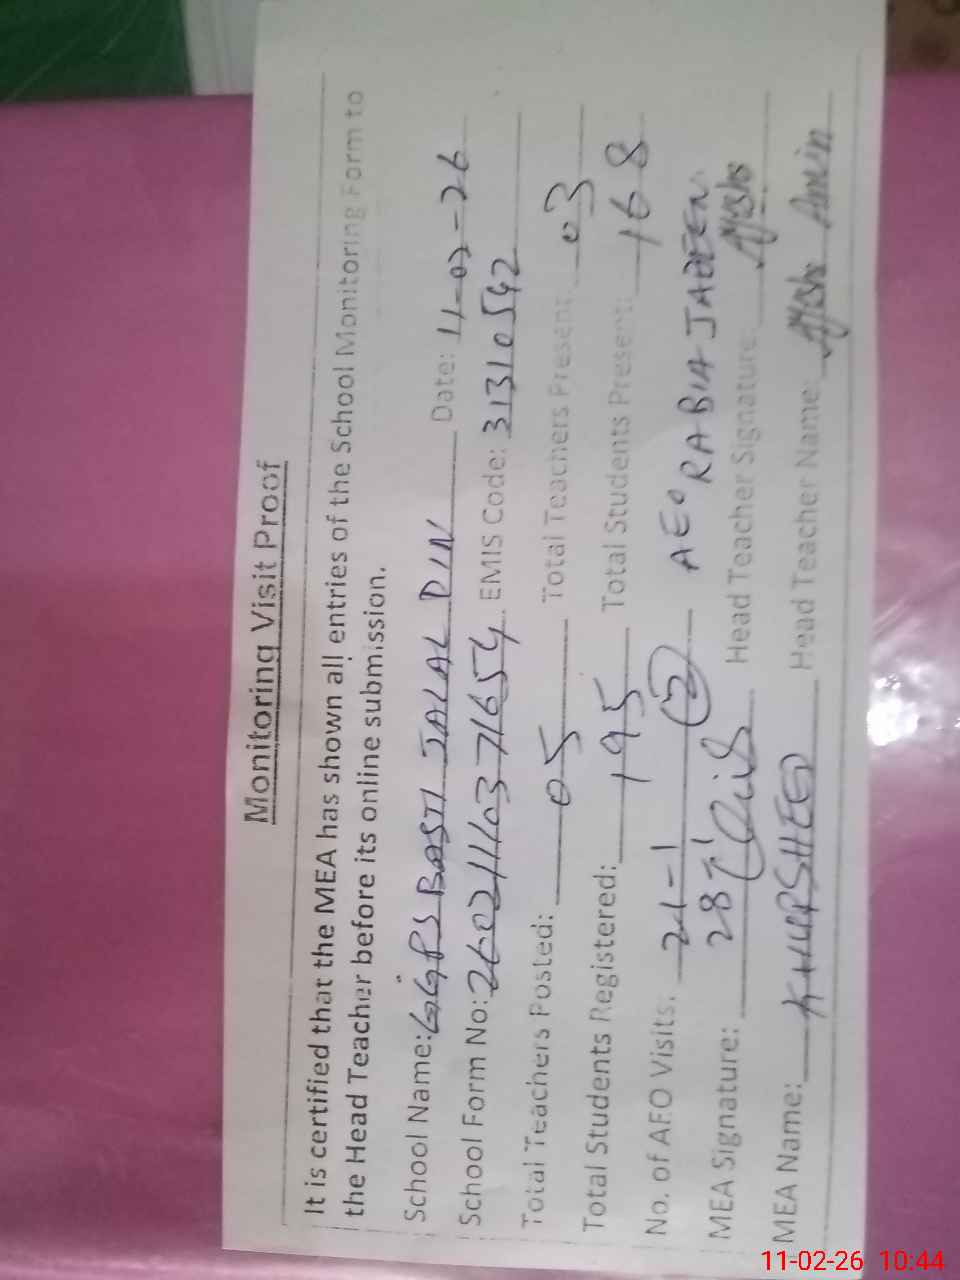 Monitoring Visit Proof
It is certified that the MEA has shown all entries of the School Monitoring Form to
the Head Teacher before its online submission.
School Name: GGPS BASTI JALAL DIN Date: 11-02-26
School Form No: 2602111037 71654 EMIS Code: 31310542
Total Teachers Posted: 05 Total Teachers Present: 03
Total Students Registered: 195 Total Students Present: 168
No. of AEO Visits: 21-1 (2) AEO RABIA JABEEN
28-1
MEA Signature: Head Teacher Signature:
MEA Name: KHURSHEED Head Teacher Name: Amin
11-02-26 10:44